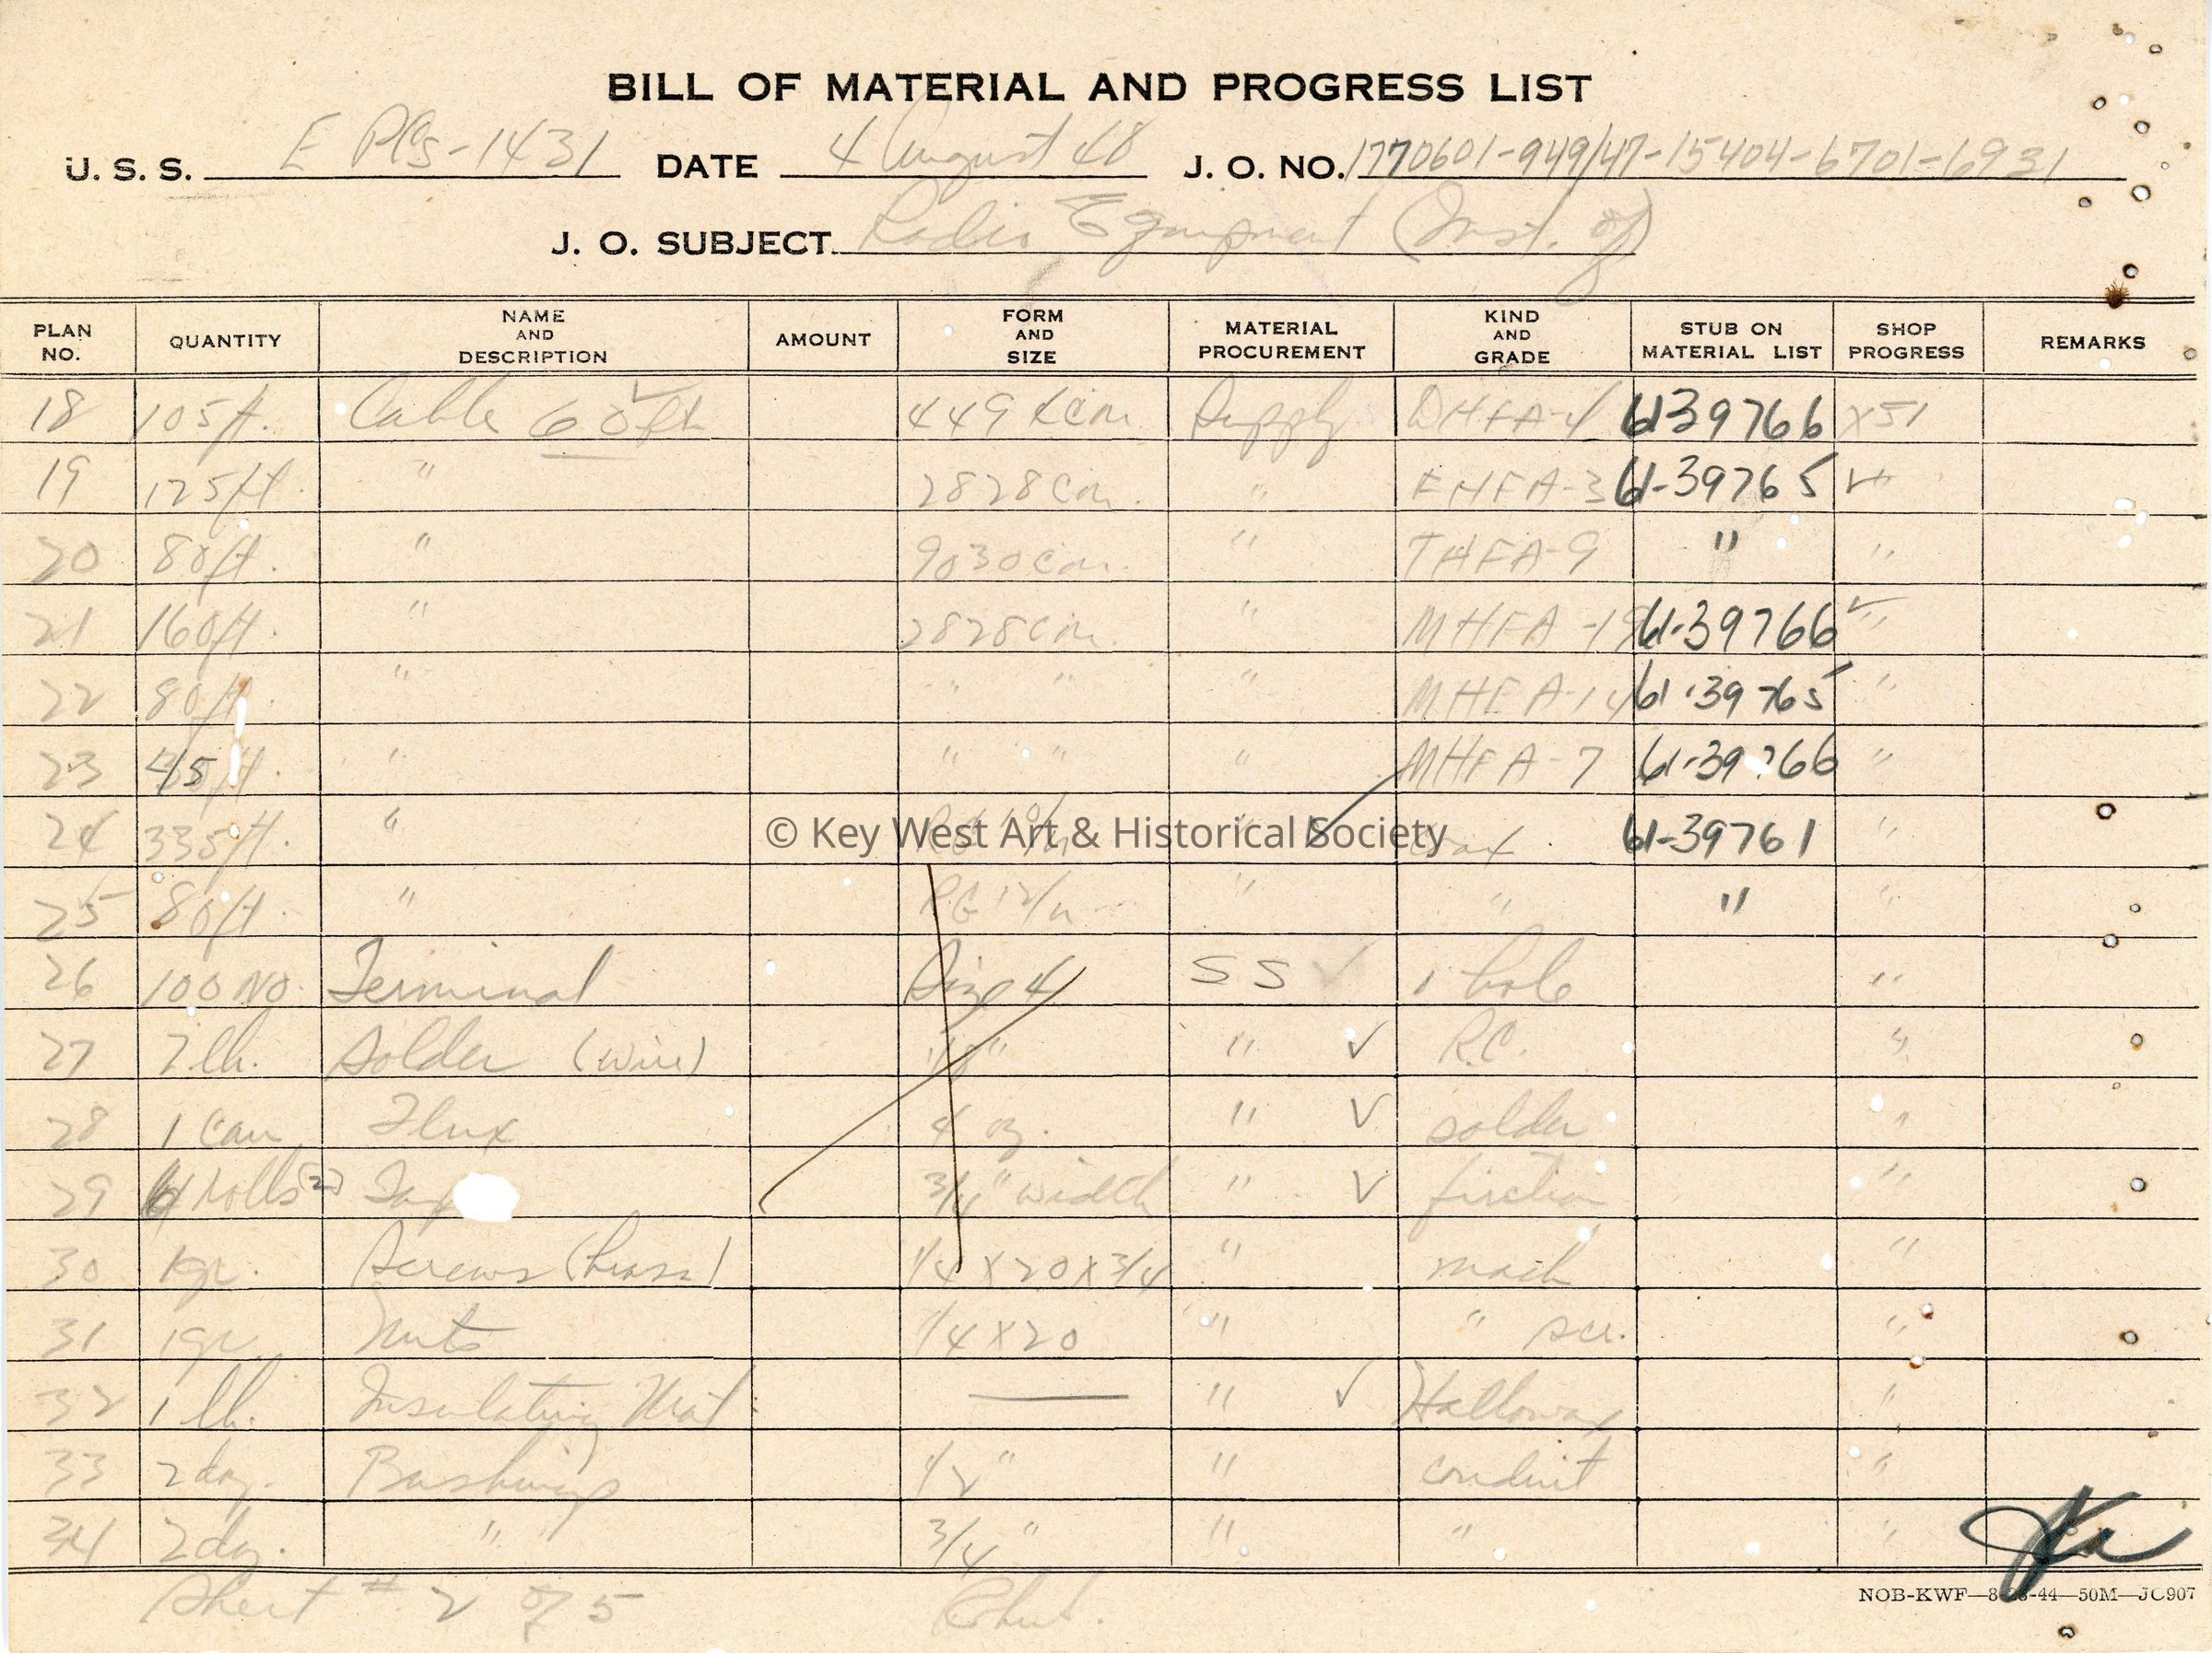 BILL OF MATERIAL AND PROGRESS LIST
U. S. S. E PCS-1431 DATE 4 August 48 J. O. NO. 1770601-949/47-15404-6701-6931
J. O. SUBJECT Radio Equipment (Inst. of)
PLAN NO. QUANTITY NAME AND DESCRIPTION AMOUNT FORM AND SIZE MATERIAL PROCUREMENT KIND AND GRADE STUB ON MATERIAL LIST SHOP PROGRESS REMARKS
18 105 ft. Cable 449 Supply DHFA-4 61-39766 X51
19 125 ft. " 2828 " FHFA-3 61-39765 "
20 80 ft. " 9030 " THFA-9 " "
21 160 ft. " 2828 " MHFA-19 61-39766 "
22 80 ft. " " " " MHFA-14 61-39765 "
23 45 ft. " " " " MHFA-7 61-39766 "
24 335 ft. " " 61-39761 "
© Key West Art & Historical Society
25 80 ft. " RG 12/u " " " "
26 100 NO. Terminal Size 4 SS ✓ 1 hole "
27 2 lb. Solder (wire) 1/8" " ✓ R.C. "
28 1 Can Flux 4 oz. " ✓ solder "
29 Rolls 3/4" width " ✓ friction "
30 1 gr. Screws (brass) 1/4 X 20 X 3/4 " mach "
31 1 gr. Nuts 1/4 X 20 " " scr. "
32 1 lb. Insulating Mat. — " ✓ Hallowax "
33 2 doz. Bushings 1/2" " conduit "
34 2 doz. " 3/4" " " "
Sheet # 2 of 5
NOB-KWF—8-23-44—50M—JC907